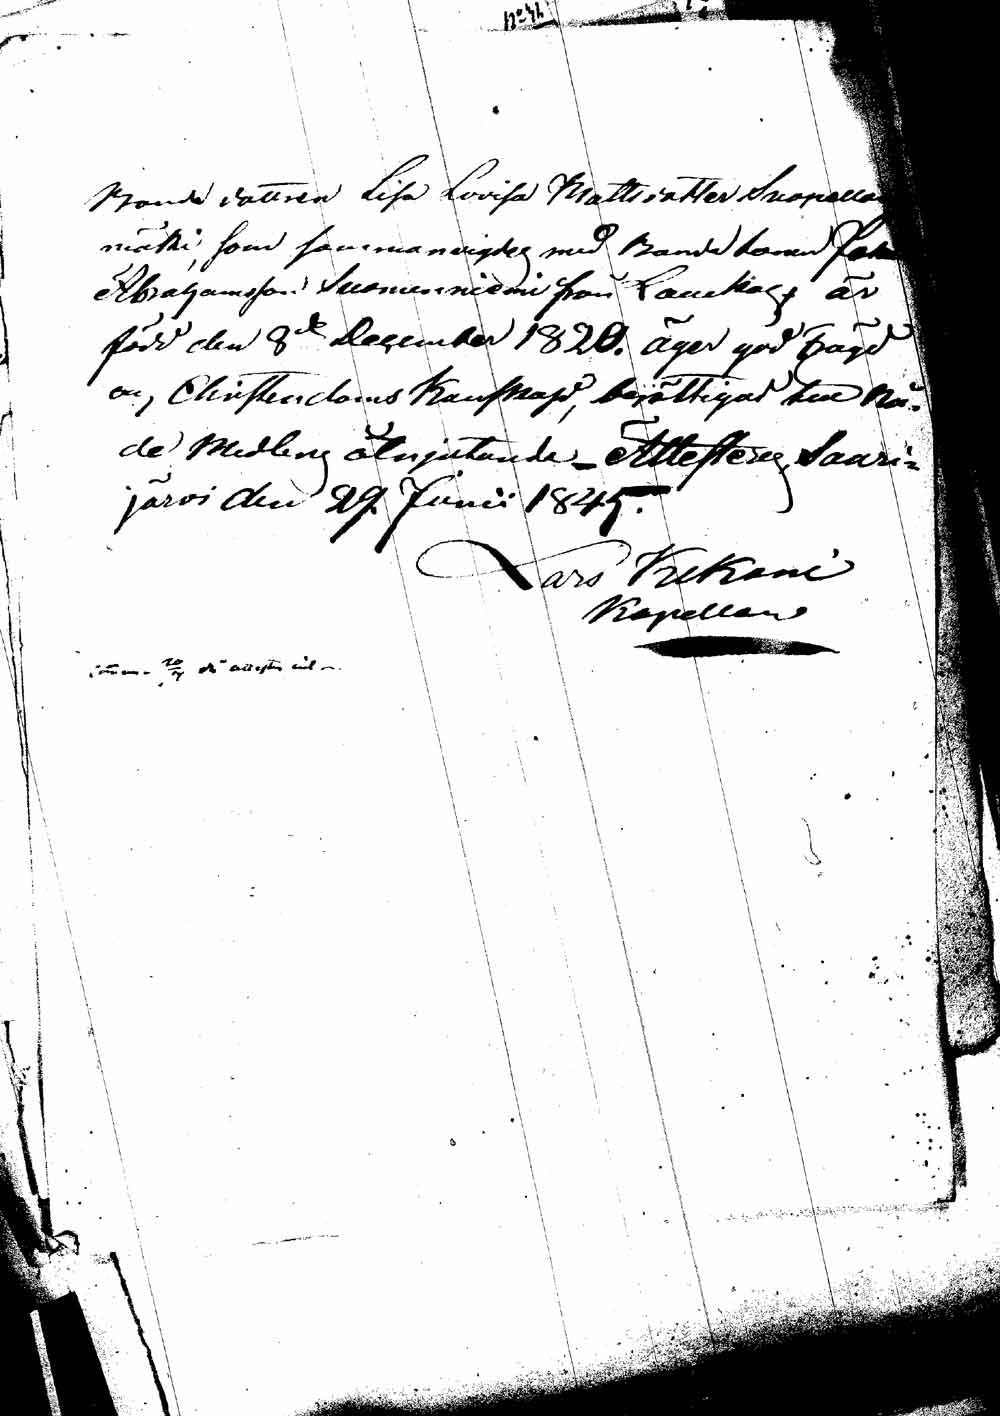 No 41.
Bonde dottren Lisa Lovisa Mattsdotter Suopellon
mäki, som sammanvigdes med Bonde sonen Joh
Abrahamsson Suomenniemi från Laukas, är
född den 8de December 1820. äger god Frägd
och Christendoms Kunskap, berättigad till Nå-
de Medlens åtnjutande – Attesteras, Saari-
järvi den 29 Junii 1845.
Lars Kekoni
Kapellan